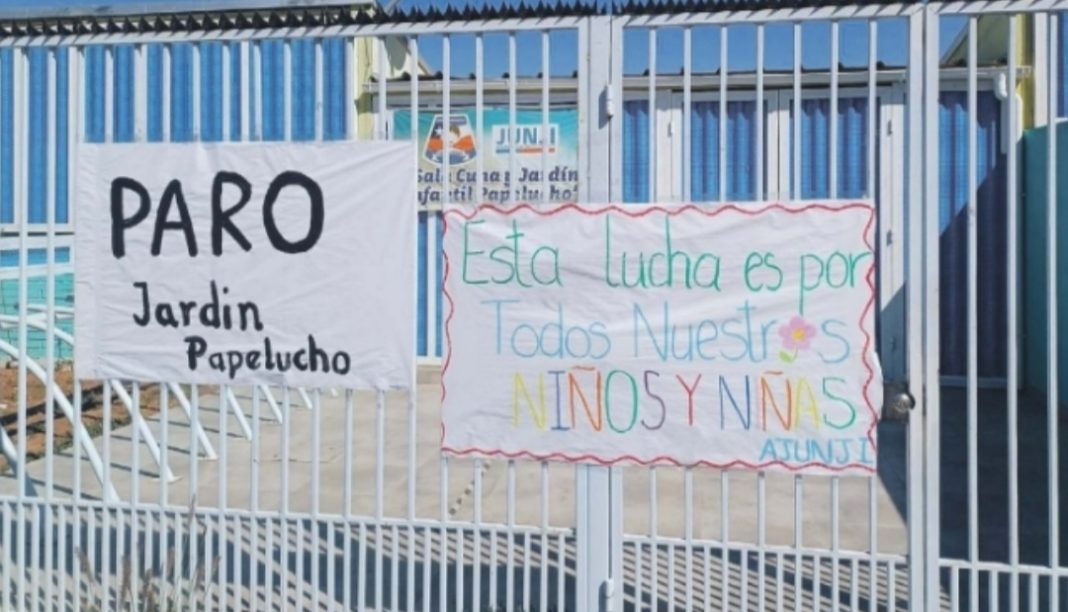 PARO
Jardin
Papelucho
JUNJI
Sala Cuna y Jardín
Infantil "Papelucho"
Esta lucha es por
Todos Nuestros
NIÑOS Y NÑAS
AJUNJI